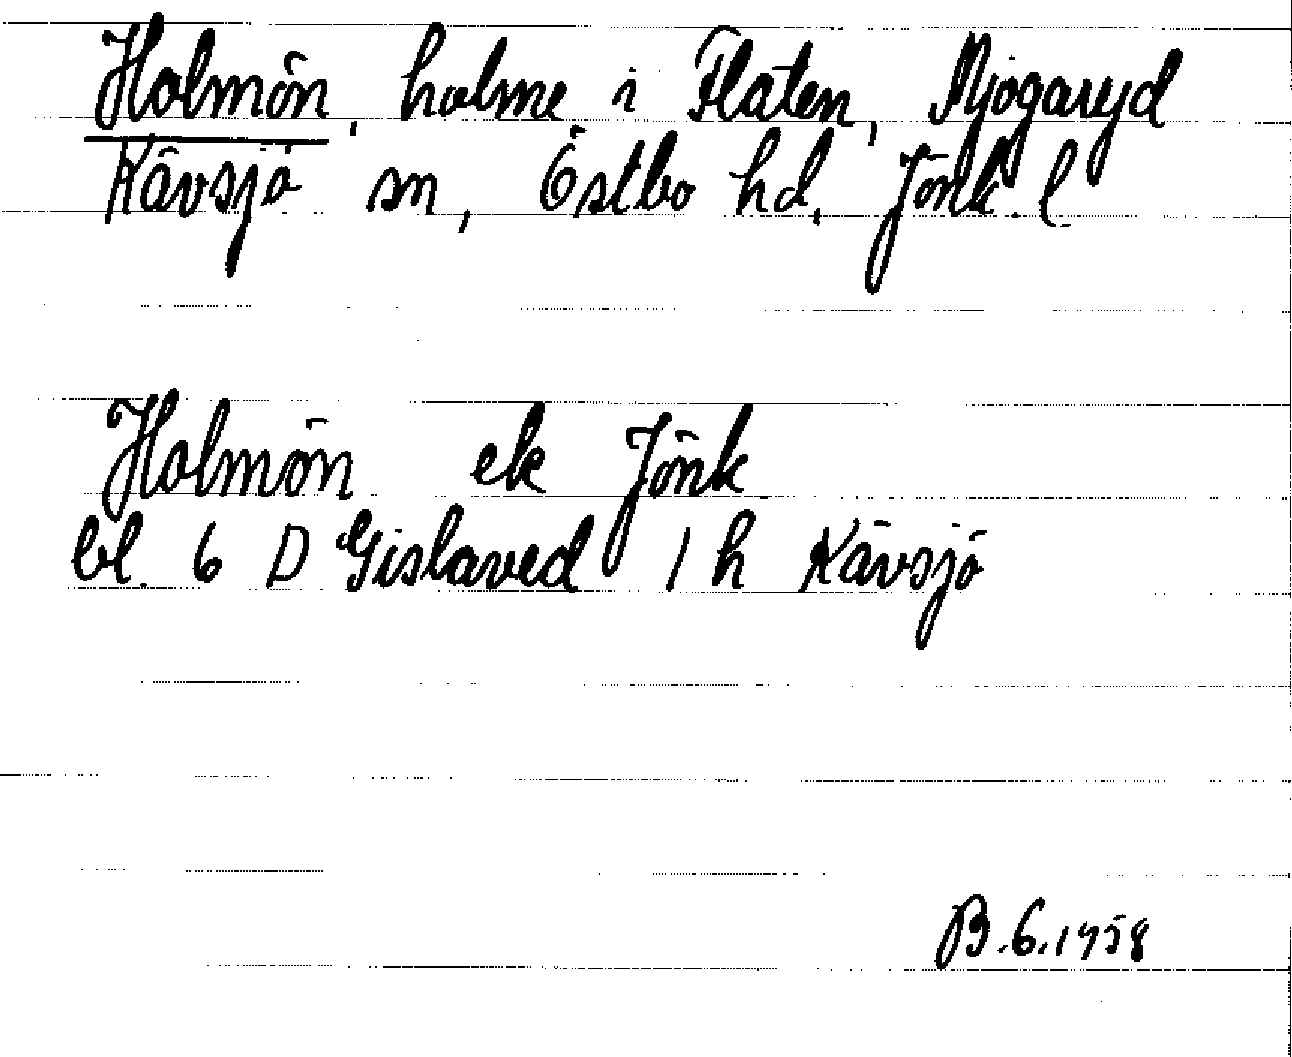 Holmön, holme i Flaten, Mjogaryd
Kävsjö sn, Östbo hd, Jönk. l
Holmön ek Jönk
bl. 6 D Gislaved 1 h Kävsjö
B.6.1958